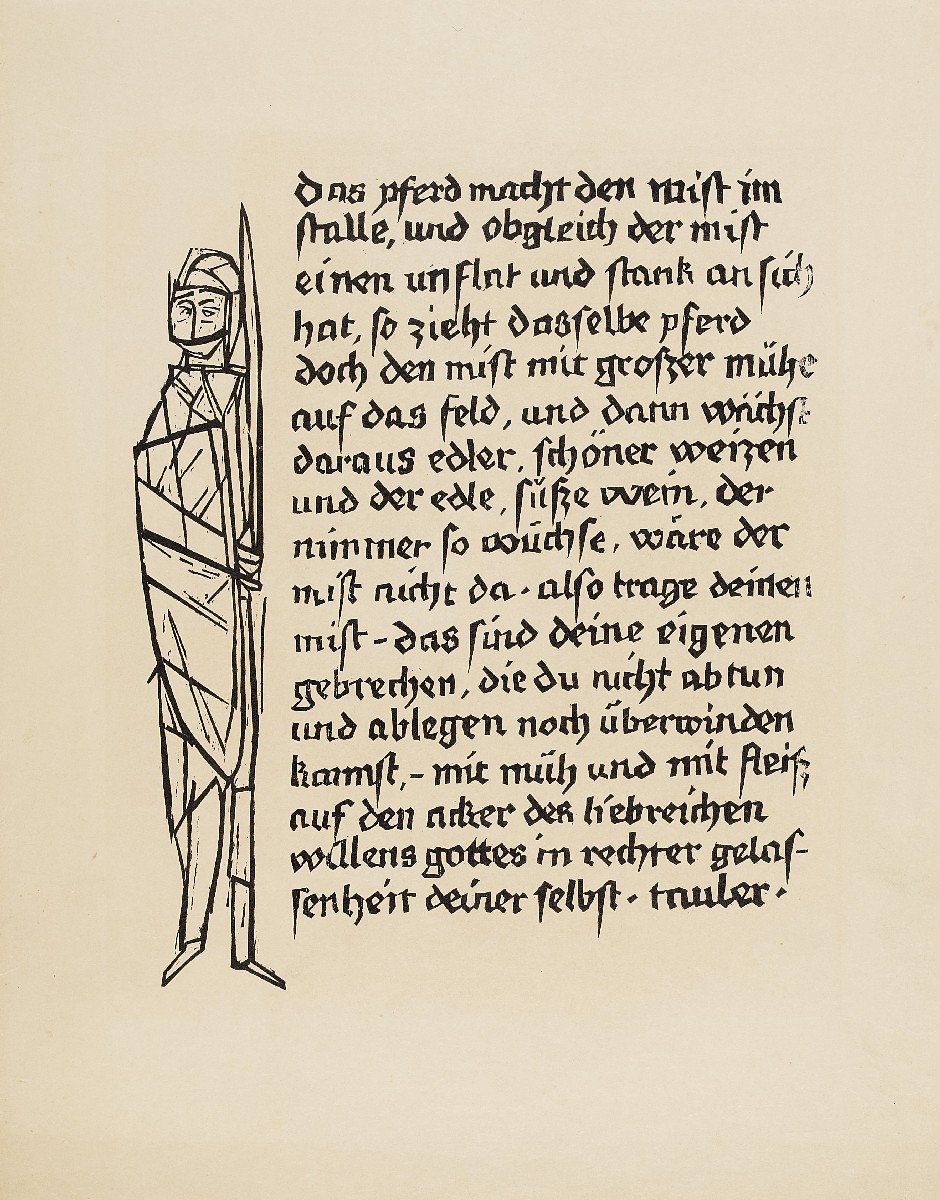 das pferd macht den mist im
stalle, und obgleich der mist
einen unflat und stank an sich
hat, so zieht dasselbe pferd
doch den mist mit großer mühe
auf das feld, und dann wächst
daraus edler, schöner weizen
und der edle, süße wein, der
nimmer so wüchse, wäre der
mist nicht da · also trage deinen
mist - das sind deine eigenen
gebrechen, die du nicht abtun
und ablegen noch überwinden
kannst, - mit müh und mit fleiß
auf den acker des liebreichen
willens gottes in rechter gelas-
senheit deiner selbst · tauler ·